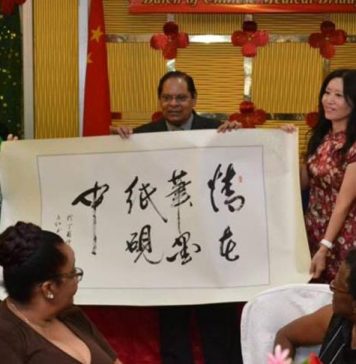 Batch of Chinese Medical Brigad
情在
筆墨
紙硯
中